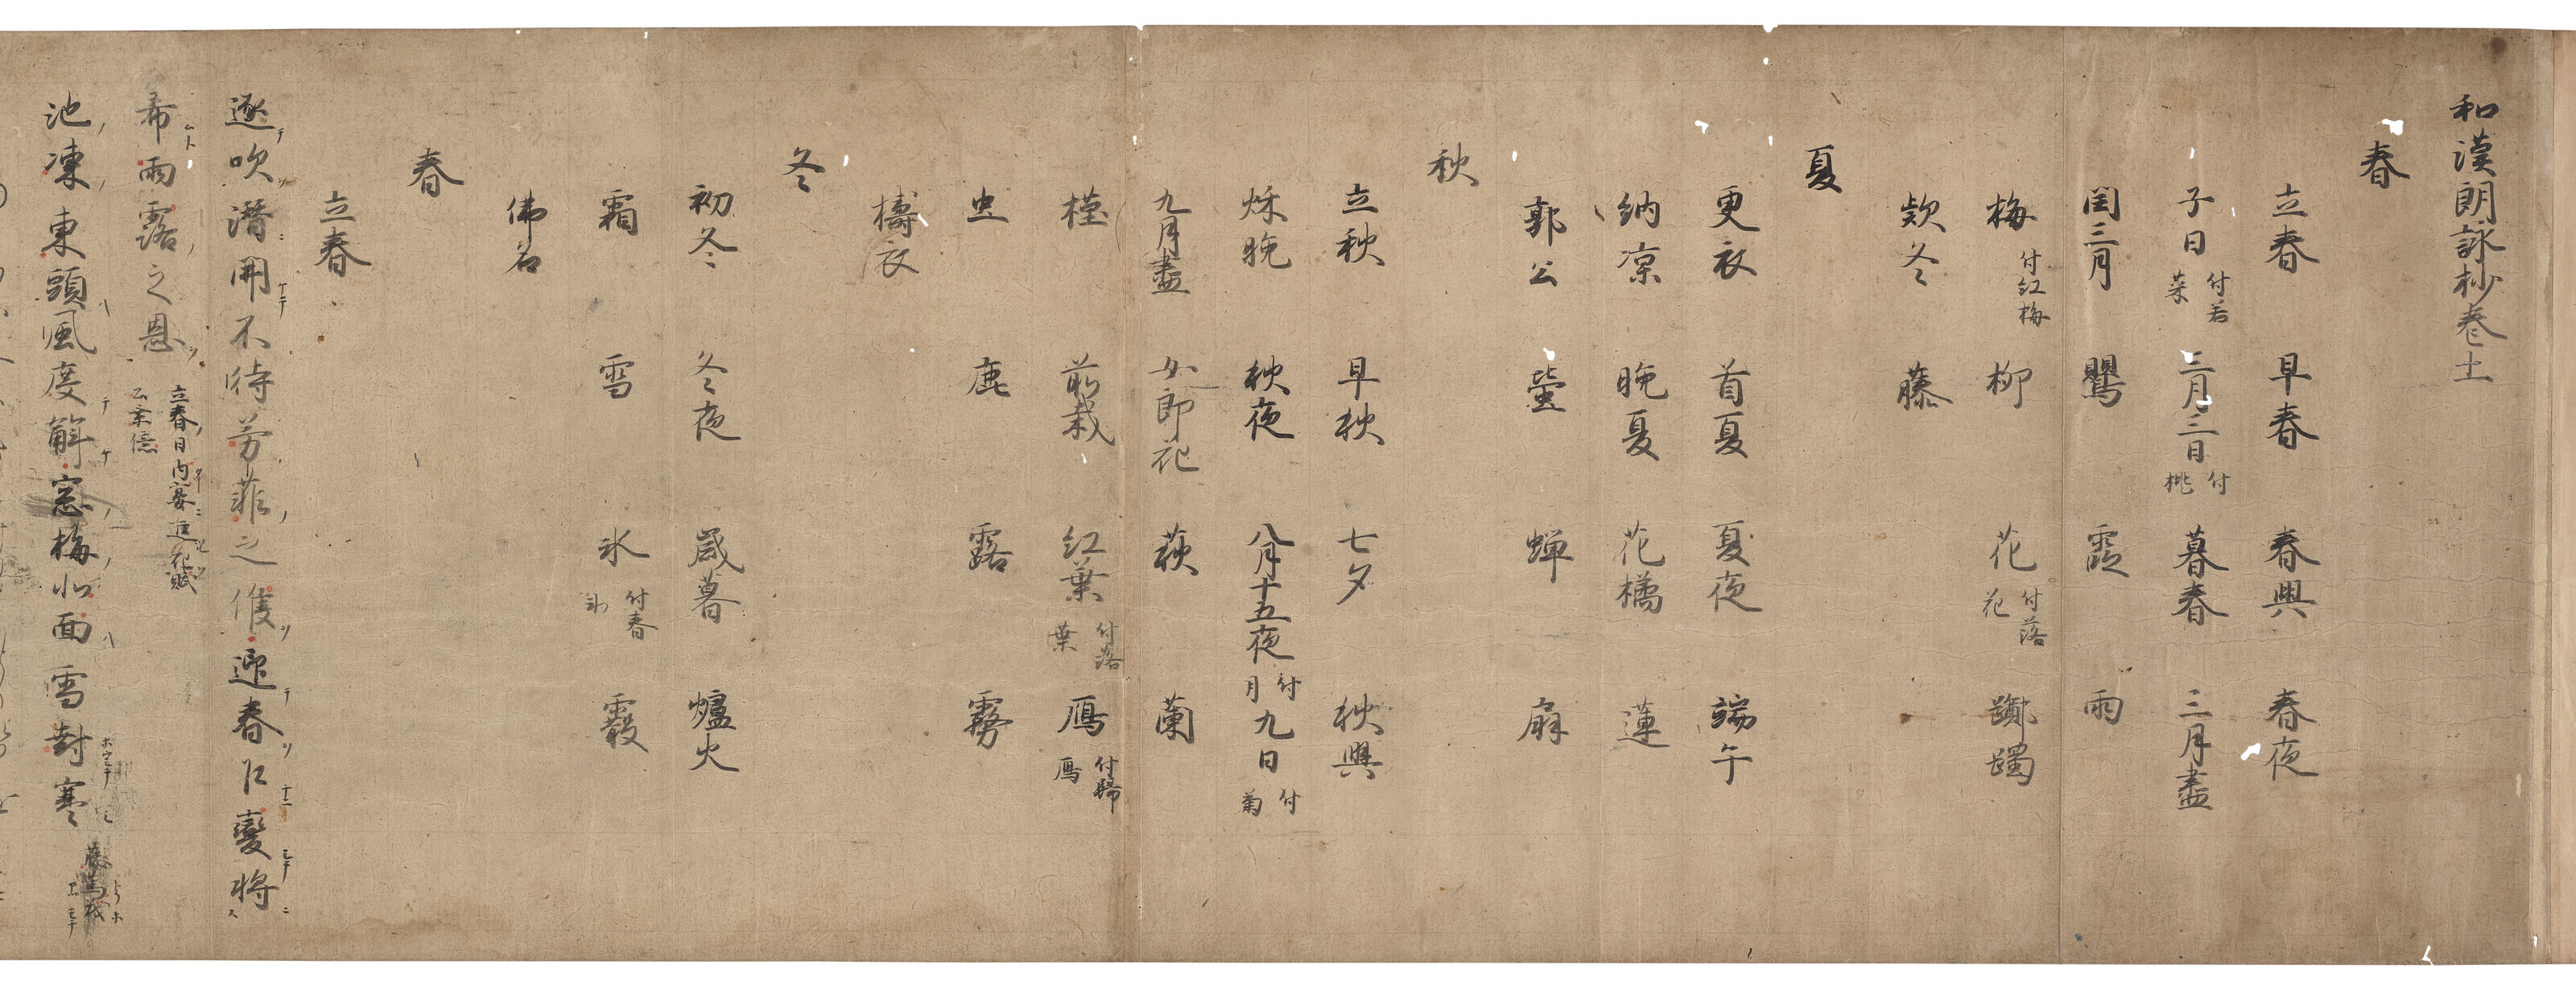 和漢朗詠抄卷上
春
立春 早春 春興 春夜
子日 付若菜 三月三日 付桃 暮春 三月盡
閏三月 鸎 霞 雨
梅 付紅梅 柳 花 付落花 躑躅
欵冬 藤
夏
更衣 首夏 夏夜 端午
納凉 晩夏 花橘 蓮
郭公 螢 蝉 扇
秋
立秋 早秋 七夕 秋興
秌晩 秋夜 八月十五夜 付月 九日 付菊
九月盡 女郎花 萩 蘭
槿 前栽 紅葉 付落葉 鴈 付歸鴈
虫 鹿 露 霧
擣衣
冬
初冬 冬夜 歳暮 爐火
霜 雪 氷 付春氷 霰
佛名
春
立春
逐吹潛開不待芳菲之候迎春乍變將
希雨露之恩 立春日内宴進花賦
池凍東頭風度解窓梅北面雪封寒 藤篤茂